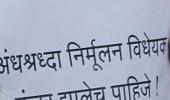 अंधश्रध्दा निर्मूलन विधेयक
झालेच पाहिजे !